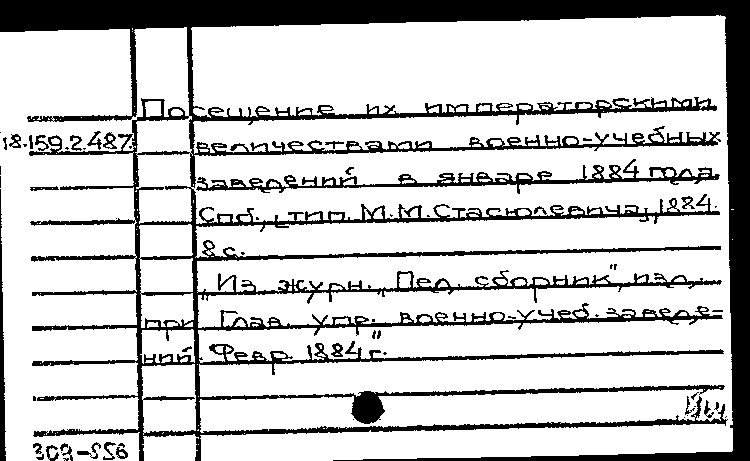 Посещение их императорскими
18.159.2.487 величествами военно-учебных
заведений в январе 1884 года.
Спб., [тип. М.М.Стасюлевича], 1884.
8 с.
„Из журн. „Пед. сборник", изд.
при Глав. упр. военно-учеб. заведе-
ний. Февр. 1884 г."
309-856